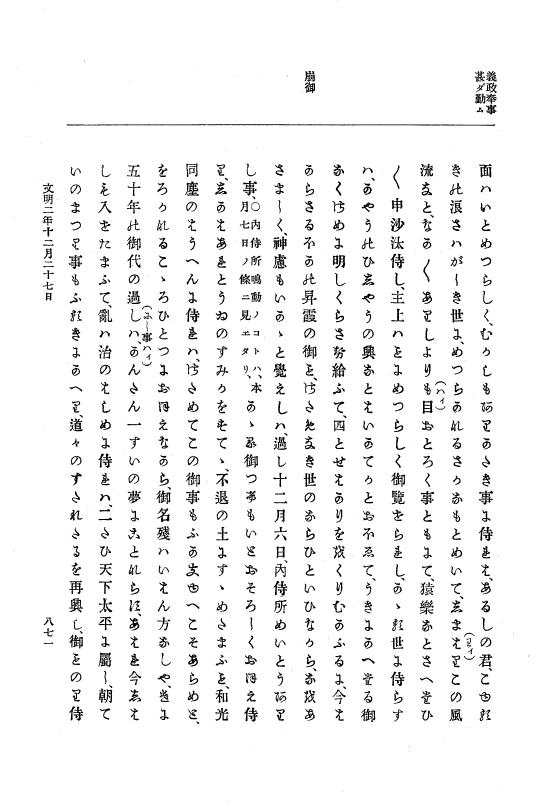 義政奉事
甚ダ勤ム
崩御
面ハいとめつらしく、むかしもありかたき事に侍れは、あるしの君、こゆる
きの浪さハがしき世に、めつらかなるさかなもとめいて、たまたりこの風
流なと、なか〱ありしよりも(ハイ)目おとろく事ともにて、猿樂なとさへせひ
〱申沙汰侍し、主上ハことにめつらしく御覽せられし、かゝる世に侍らす
ハ、かやうのひなやうの興なとはいかてかとおほえて、うきにかへたる御
なくさめに明しくらさせ給ふて、四とせはかりをおくりむかふるに、今は
あらさるほかの昇霞の御事、さためなき世のならひといひなから、なおあ
さまし〱、神慮もいかゝと覺えしハ、過し十二月六日、内侍所めいとうあり
し事、○内侍所鳴動ノコトハ、本月七日ノ條ニ見エタリ、かゝる御つけもいとおそろしくおほえ侍
り、のすみかをすてゝ、不退の土にすゝめたまふも、和光
同塵のはうへんに侍れハ、さためてこの御事もふかきゆへこそあらめと、
をろかなるこゝろひとつにおほえなから、御名殘ハいはん方なしや、さても
五十年の御代の過しハ、かんたん一すいの夢にことならす、あはれ今
しも入をたまふて、亂ハ治のはしめに侍れハ、二たひ天下太平に屬し、朝て
いのまつり事もふるきにかへり、道々のすたれたるを再興し、御とのり侍
文明二年十二月二十七日
八七一